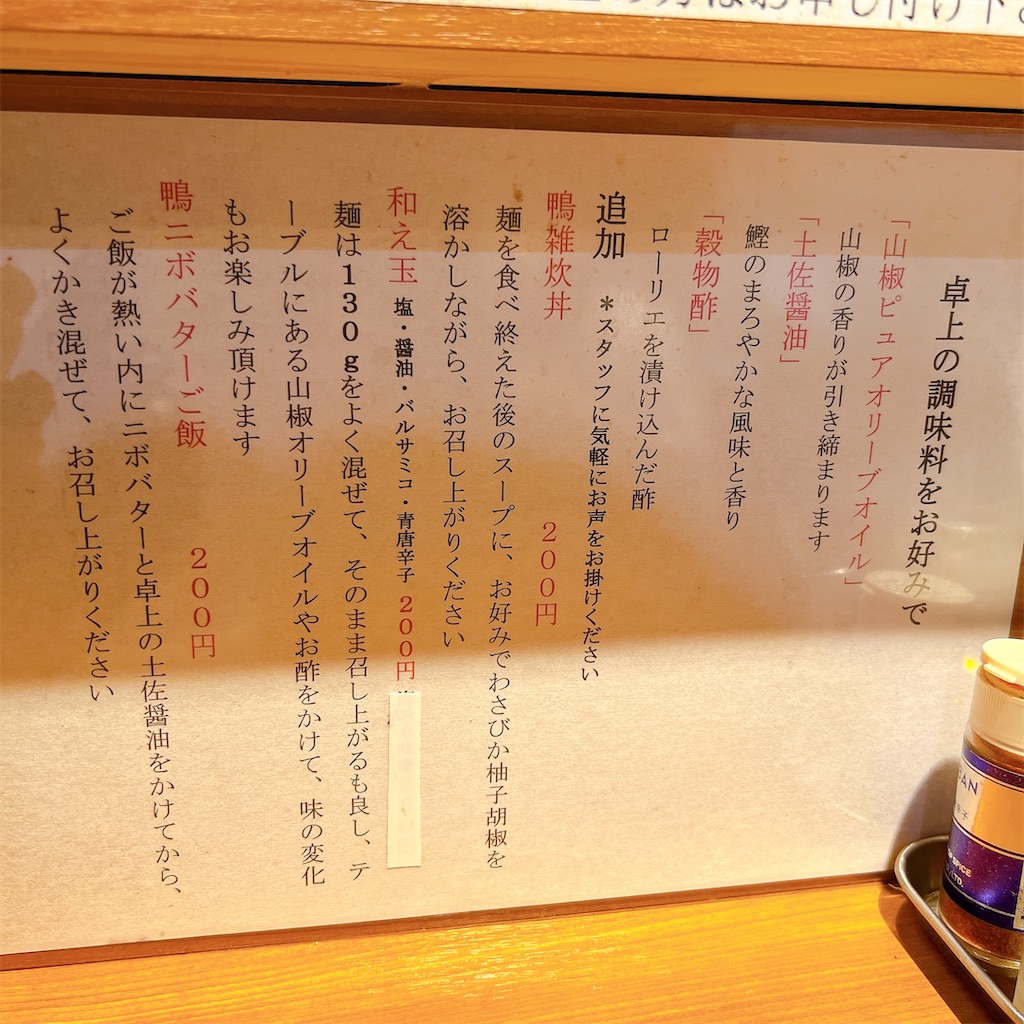 はお申し付け下
卓上の調味料をお好みで
「山椒ピュアオリーブオイル」
山椒の香りが引き締まります
「土佐醤油」
鰹のまろやかな風味と香り
「穀物酢」
ローリエを漬け込んだ酢
追加 *スタッフに気軽にお声をお掛けください
鴨雑炊丼 200円
麺を食べ終えた後のスープに、お好みでわさびか柚子胡椒を
溶かしながら、お召し上がりください
和え玉 塩・醤油・バルサミコ・青唐辛子 200円
麺は130gをよく混ぜて、そのまま召し上がるも良し、テ
ーブルにある山椒オリーブオイルやお酢をかけて、味の変化
もお楽しみ頂けます
鴨ニボバターご飯 200円
ご飯が熱い内にニボバターと卓上の土佐醤油をかけてから、
よくかき混ぜて、お召し上がりください
CAN
SPICE
LTD.